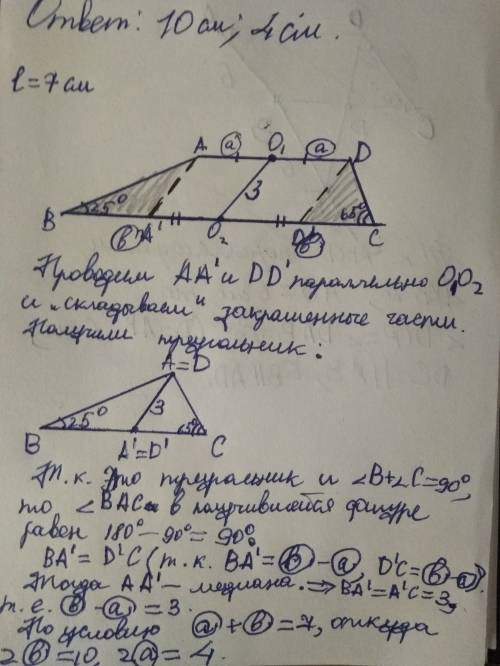 Ответ: 10 см; 4 см.
l = 7 см
A a O₁ a D
B 25° 3 65° C
b A' O₂ D' b
Проводим AA' и DD' параллельно O₁O₂
и „складываем" закрашенные части.
Получили треугольник:
A=D
B 25° 3 65° C
A'=D'
Т.к. это треугольник и ∠B+∠C=90°,
то ∠BAC в получившейся фигуре
равен 180°-90°=90°.
BA'=D'C (т.к. BA'=b-a, D'C=b-a).
Тогда AA' - медиана. ⇒ BA'=A'C=3,
т.е. b-a=3.
По условию a+b=7, откуда
2b=10, 2a=4.